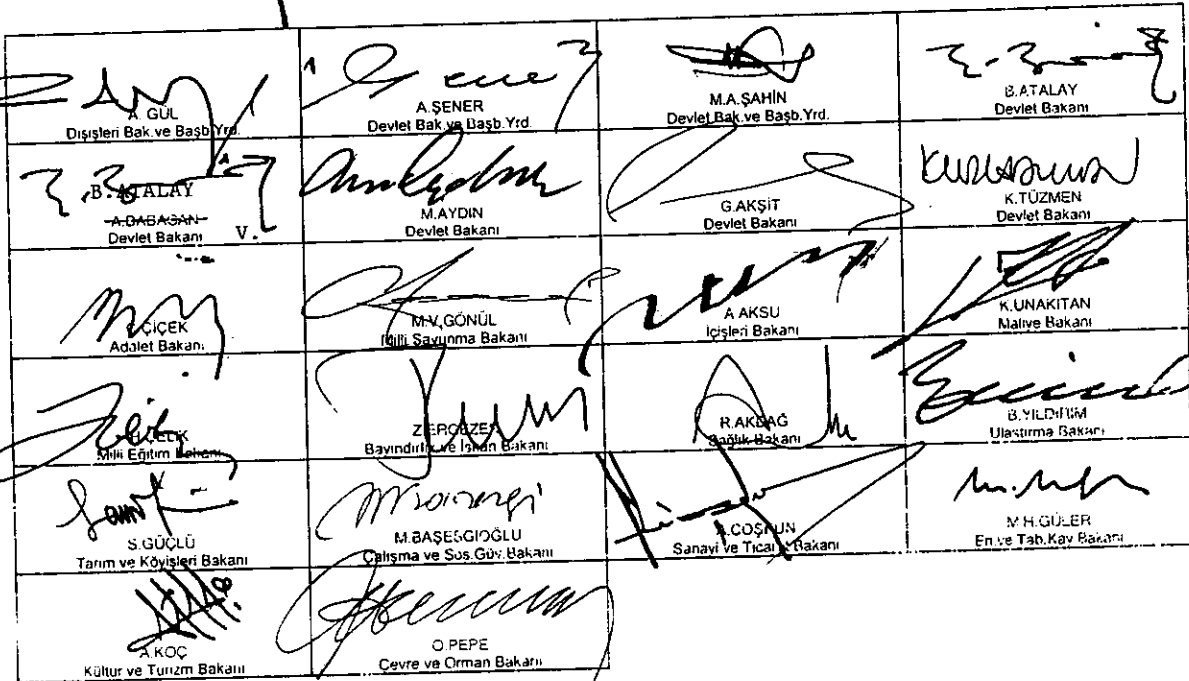 A. GÜL
Dışişleri Bak.ve Başb.Yrd.
A.ŞENER
Devlet Bak.ve Başb.Yrd
M.A.ŞAHİN
Devlet Bak.ve Başb.Yrd.
B.ATALAY
Devlet Bakanı
B.ATALAY
A.BABACAN
Devlet Bakanı V.
M.AYDIN
Devlet Bakanı
G.AKŞİT
Devlet Bakanı
K.TÜZMEN
Devlet Bakanı
ÇİÇEK
Adalet Bakanı
M.V.GÖNÜL
Milli Savunma Bakanı
A.AKSU
İçişleri Bakanı
K.UNAKITAN
Maliye Bakanı
H.ÇELİK
Milli Eğitim Bakanı
Z.ERGEZEN
Bayındırlık ve İskan Bakanı
R.AKDAĞ
Sağlık Bakanı
B.YILDIRIM
Ulaştırma Bakanı
S.GÜÇLÜ
Tarım ve Köyişleri Bakanı
M.BAŞESGİOĞLU
Çalışma ve Sos.Güv.Bakanı
A.COŞKUN
Sanayi ve Ticaret Bakanı
M.H.GÜLER
En.ve Tab.Kay.Bakanı
A.KOÇ
Kültür ve Turizm Bakanı
O.PEPE
Çevre ve Orman Bakanı